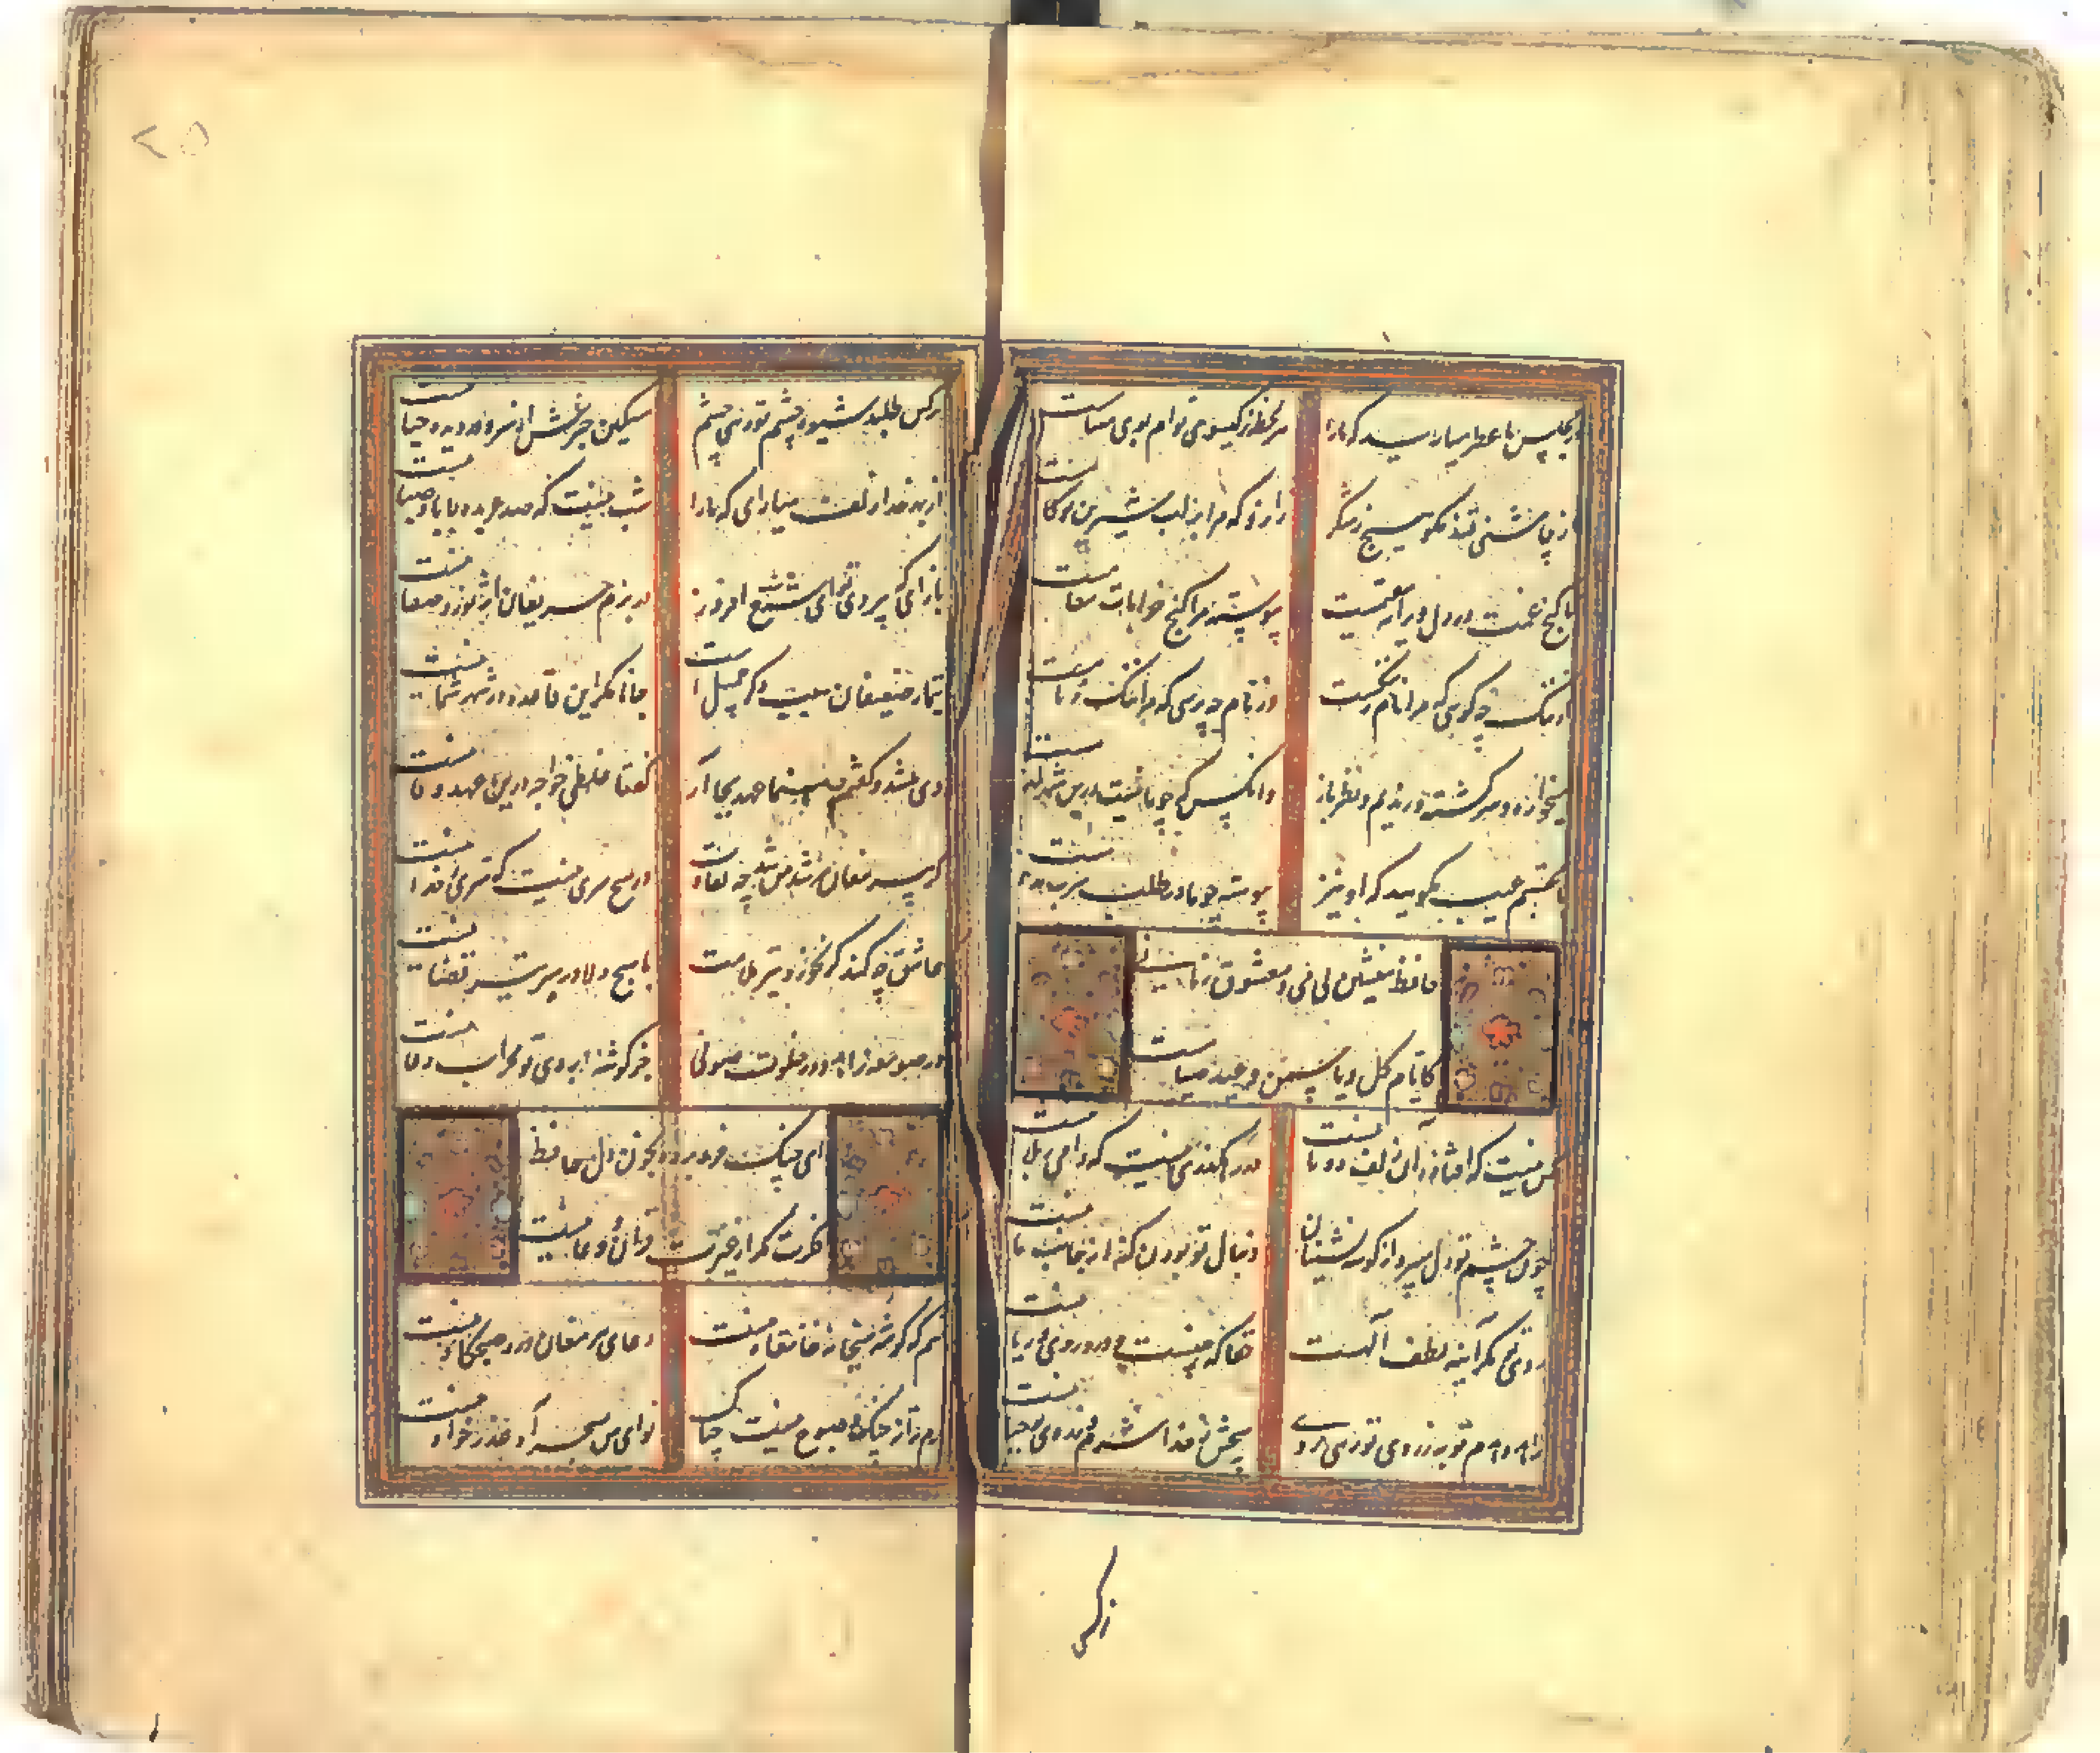 در مجلس ما عطر میامیز که ما را
هر لحظه ز گیسوی توام بوی مشامست
از چاشنی قند مگو هیچ ز شکر
زانرو که مرا از لب شیرین تو کامست
تا گنج غمت در دل ویرانه مقیمست
پیوسته مرا کنج خرابات مقامست
از ننگ چه گویی که مرا نام ز ننگست
وز نام چه پرسی که مرا ننگ ز نامست
میخواره و سرگشته و رندیم و نظرباز
وانکس که چو ما نیست درین شهر
با محتسبم عیب مگویید که او نیز
پیوسته چو ما در طلب
حافظ منشین بی می و معشوق زمانی
کایام گل و یاسمن و عید صیامست
کس نیست که افتاده آن زلف دوتا نیست
در رهگذری نیست که دامی ز بلا نیست
چون چشم تو دل میبرد از گوشه نشینان
دنبال تو بودن گنه از جانب ما نیست
روی تو مگر آینه لطف الهست
حقا که چنینست و درو روی و ریا نیست
زاهد دهدم توبه ز روی تو زهی روی
هیچش ز خدا شرم و ز روی تو حیا نیست
نرگس
۲۵
نرگس طلبد شیوه چشم تو زهی چشم
مسکین خبرش از سر و در دیده حیا نیست
از بهر خدا زلف میارای که ما را
شب نیست که صد عربده با باد صبا نیست
بازآی که بی روی تو ای شمع دل افروز
در بزم حریفان اثر نور و صفا نیست
تیمار غریبان سبب ذکر جمیل است
جانا مگر این قاعده در شهر شما نیست
دی میشد و گفتم صنما عهد بجا آر
گفتا غلطی خواجه درین عهد وفا نیست
گر پیر مغان مرشد من شد چه تفاوت
در هیچ سری نیست که سری ز خدا نیست
عاشق چه کند گر نخورد تیر ملامت
با هیچ دلاور سپر تیر قضا نیست
در صومعه زاهد و در خلوت صوفی
جز گوشه ابروی تو محراب دعا نیست
ای چنگ فرو برده بخون دل حافظ
فکرت مگر از غیرت قرآن و خدا نیست
منم که گوشه میخانه خانقاه منست
دعای پیر مغان ورد صبحگاه منست
گرم ترانه چنگ صبوح نیست چه باک
نوای من بسحر آه عذرخواه منست